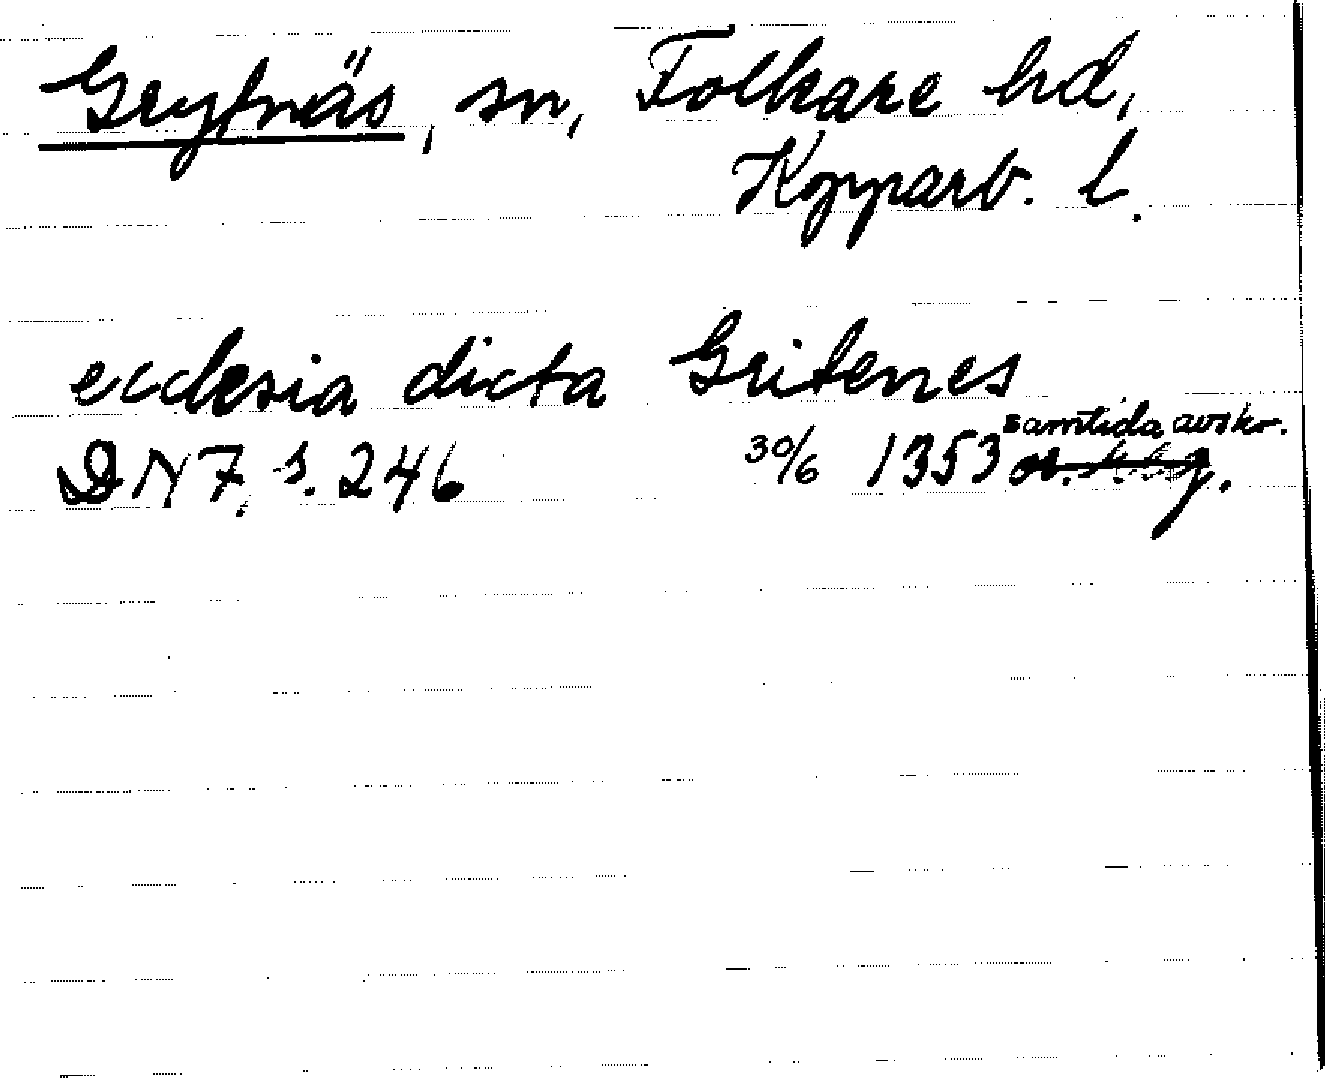 Grytnäs, sn, Folkare hd,
Kopparb. l.
ecclesia dicta Gritenes
samtida avskr.
DN 7, s. 246 30/6 1353